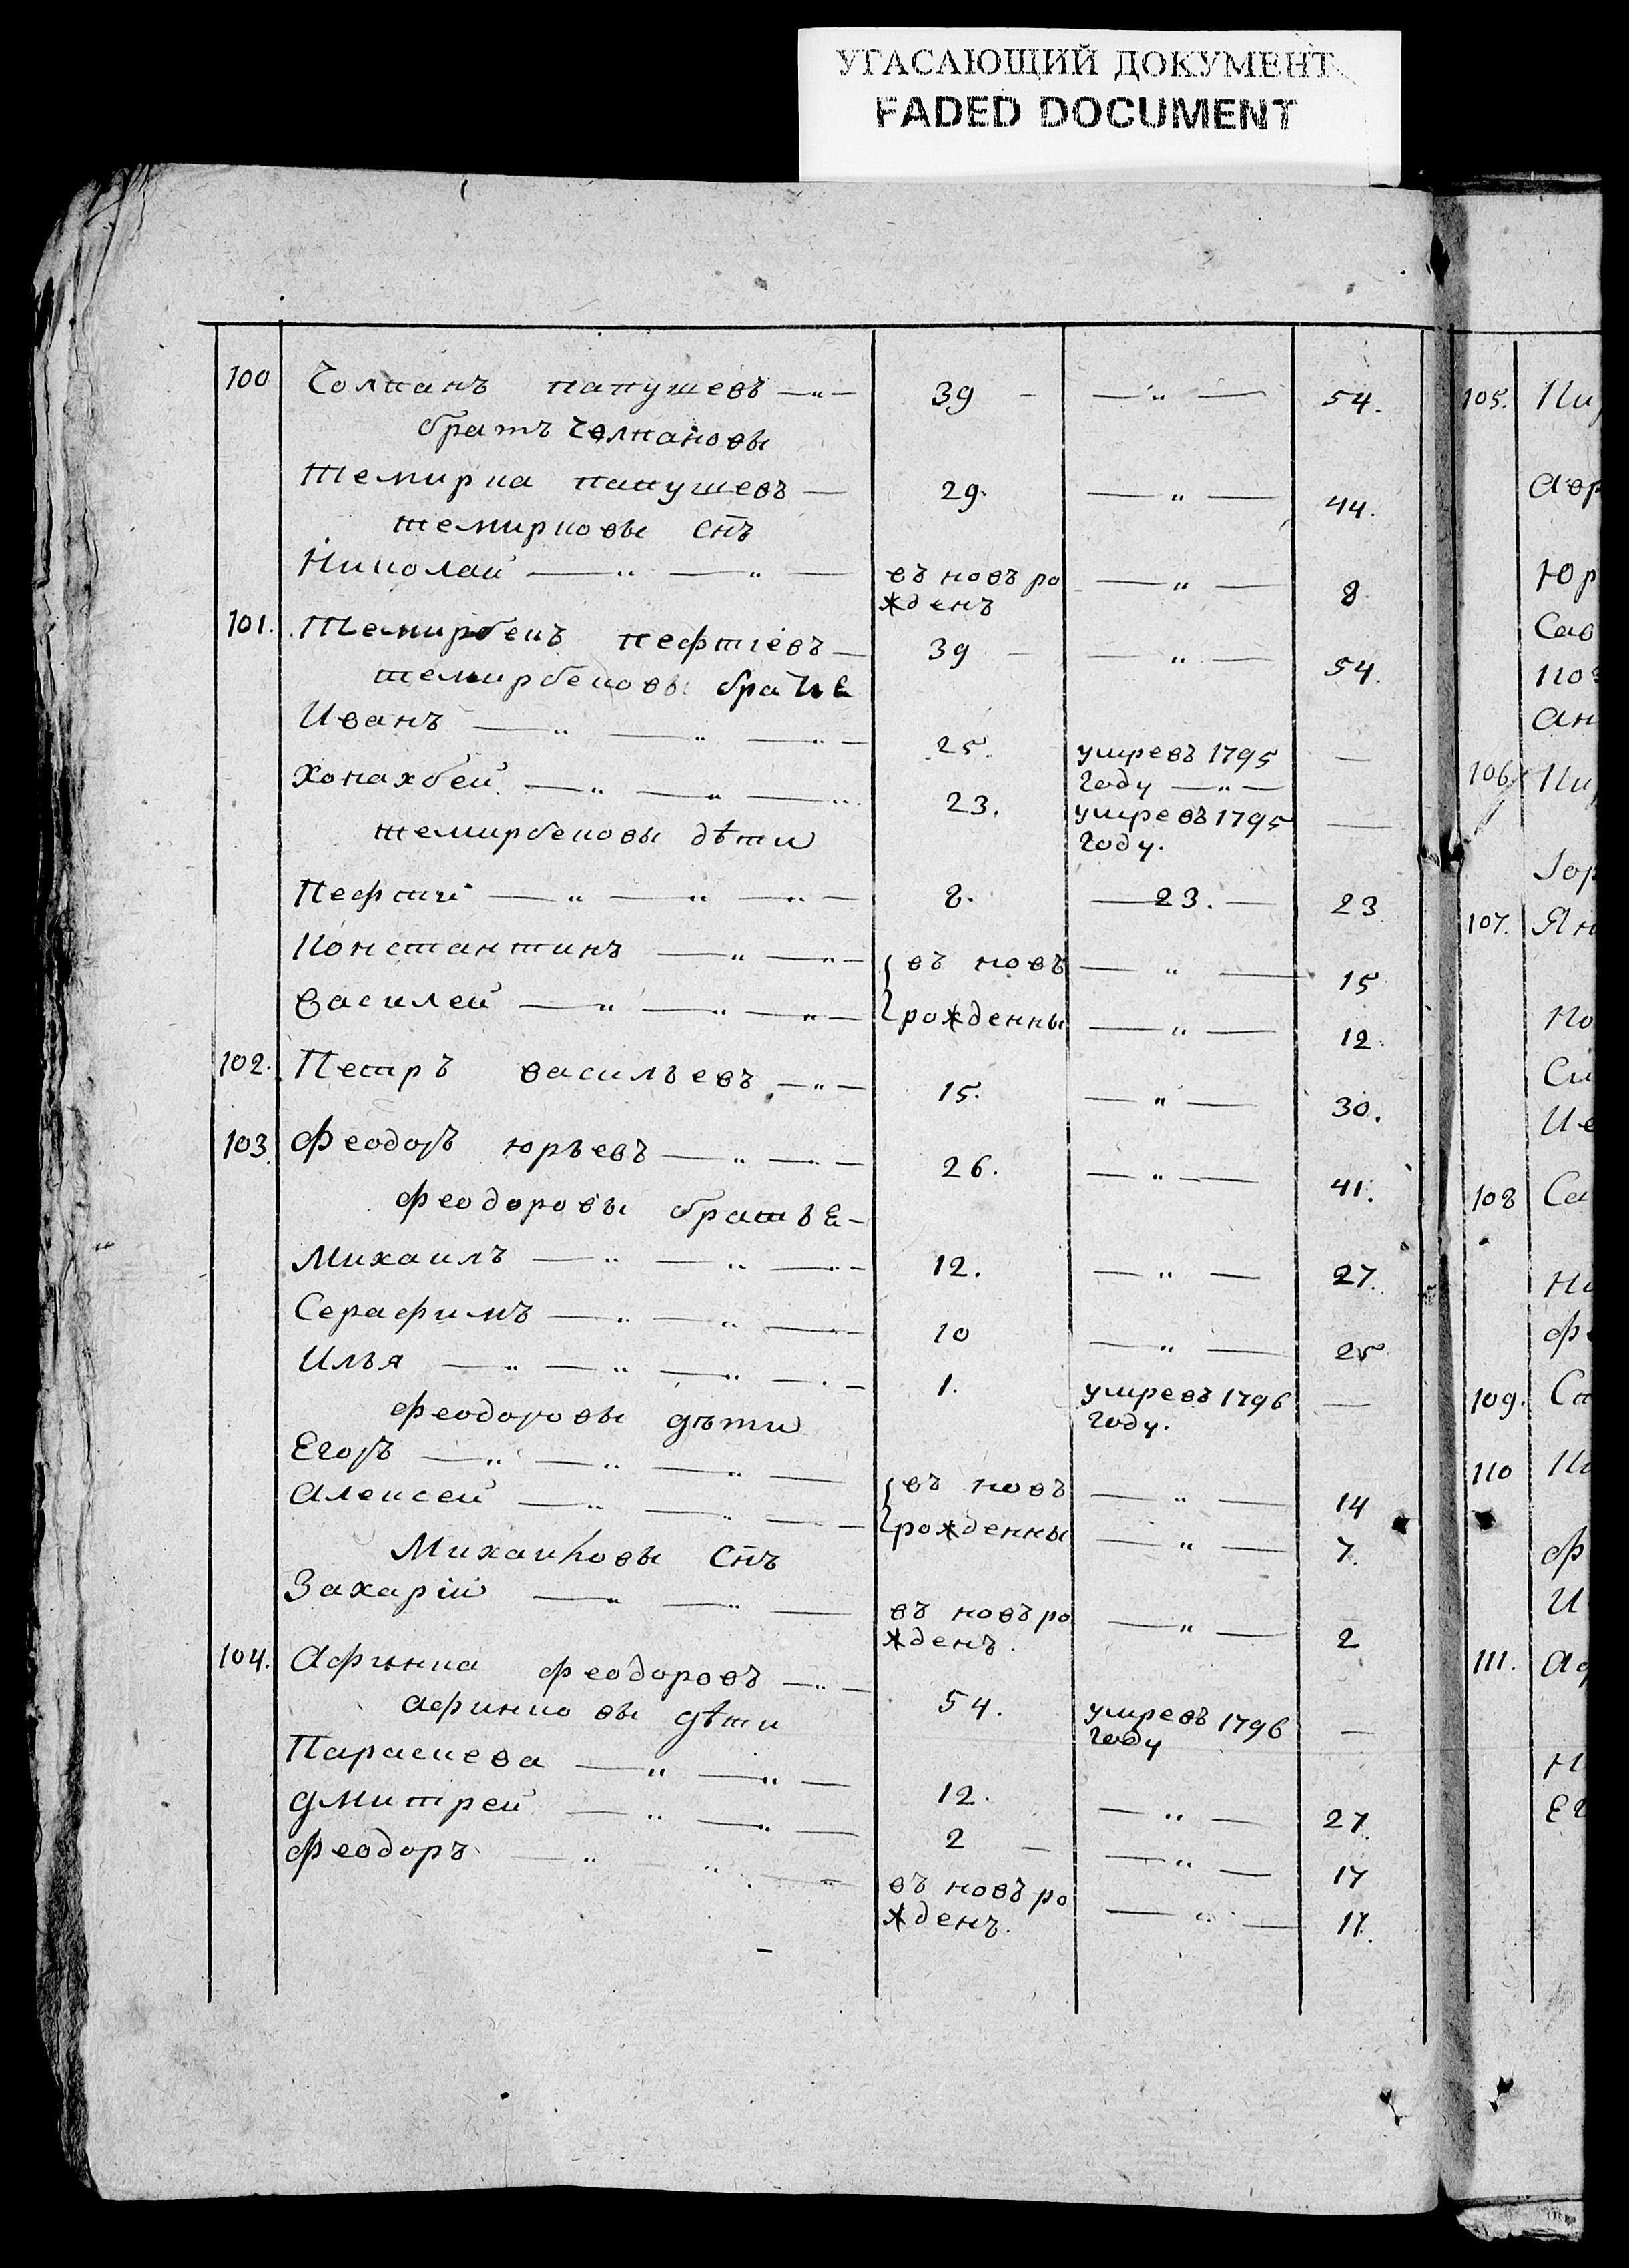 УГАСАЮЩИЙ ДОКУМЕНТ
FADED DOCUMENT
100 Чолпанъ папушевъ —„— 39 — —„— 54.
братъ Чолпановы
Темирка папушевъ — 29. —„— 44.
темирковы снъ
Николай —„—„— въ новъ ро —„— 8
жденъ
101. Темирбекъ пефтіевъ — 39 — —„— 54.
темирбековы братье
Иванъ —„—„—„— 25. умре въ 1795 —
году —„—
Хонахбей. —„—„—„ 23. умре въ 1795 —
году.
темирбековы дѣти
Пефтиі —„—„—„— 8. —23.— 23
Константинъ —„—„— въ новъ —„— 15
Василей —„—„—„— рожденны —„— 12
102. Петръ васильевъ —„— 15. —„— 30.
103. Феодоръ юрьевъ —„—„— 26. —„— 41.
феодоровы братье —
Михаилъ —„—„—„— 12. —„— 27.
Серафимъ —„—„—„— 10 —„— 25
Илья —„—„—„—.— 1. умре въ 1796 —
году.
феодоровы дѣти
Егоръ —„—„—„— въ новъ —„— 14
Алексей —„—„—„— рожденны —„— 7.
Михаиловы снъ
Захарій —„—„— въ новъ ро —„— 2
жденъ.
104. Афинка феодоровъ —„— 54. умре въ 1796 —
году
афинковы дѣти
Параскева —„—„— 12. —„— 27.
Дмитрей —„—„— 2 — —„— 17
Феодоръ —„—„—„ въ новъ ро —„— 11.
жденъ.
105.
Юр
106.
107. Ян
108 Са
109.
110
111.